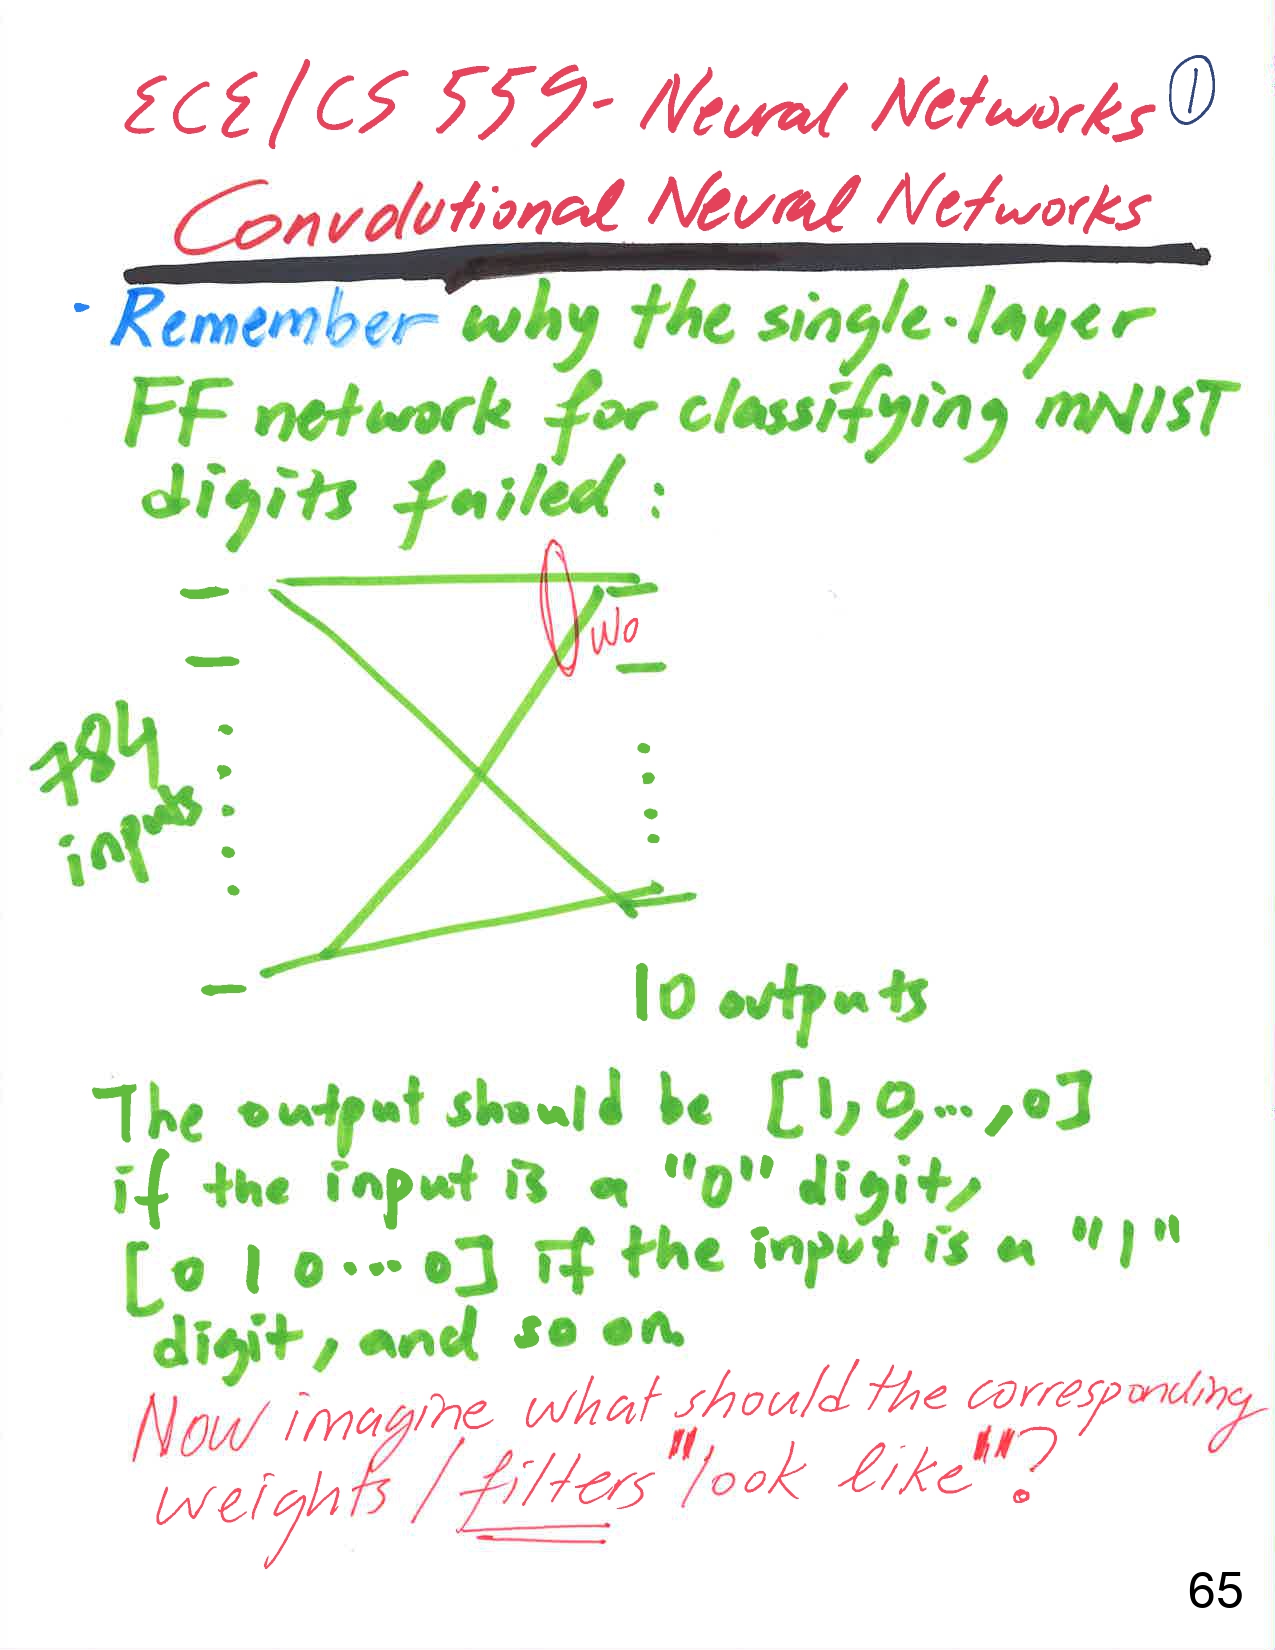 ECE/CS 559- Neural Networks ①
Convolutional Neural Networks
· Remember why the single-layer
FF network for classifying mNIST
digits failed :
W0
784
inputs
10 outputs
The output should be [1, 0, ... , 0]
if the input is a "0" digit,
[0 1 0 ... 0] if the input is a "1"
digit, and so on.
Now imagine what should the corresponding
weights / filters "look like"?
65